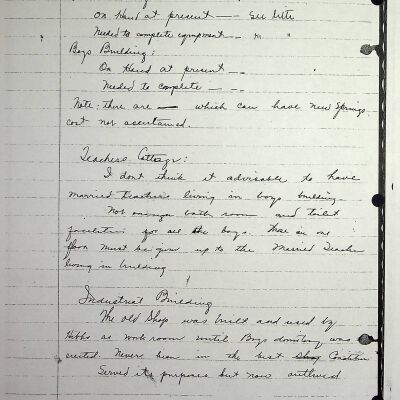 On Hand at present — See
Needed to complete equipment — " "
Boys Building:
On Hand at present — —
Needed to complete — — —
Note: there are — which can have new springs.
cost not ascertained.
Teachers Cottage:
I dont think it advisable to have
married teachers living in boys building.
Not enough bath room and toilet
facilities for all the boys. Those on one
floor must be given up to the Married Teacher
living in building
Industrial Building
The old Shop was built and used by
Hobbs as work room until Boys dormitory was
erected. Never been in the best Condition
Served its purpose but now outlived